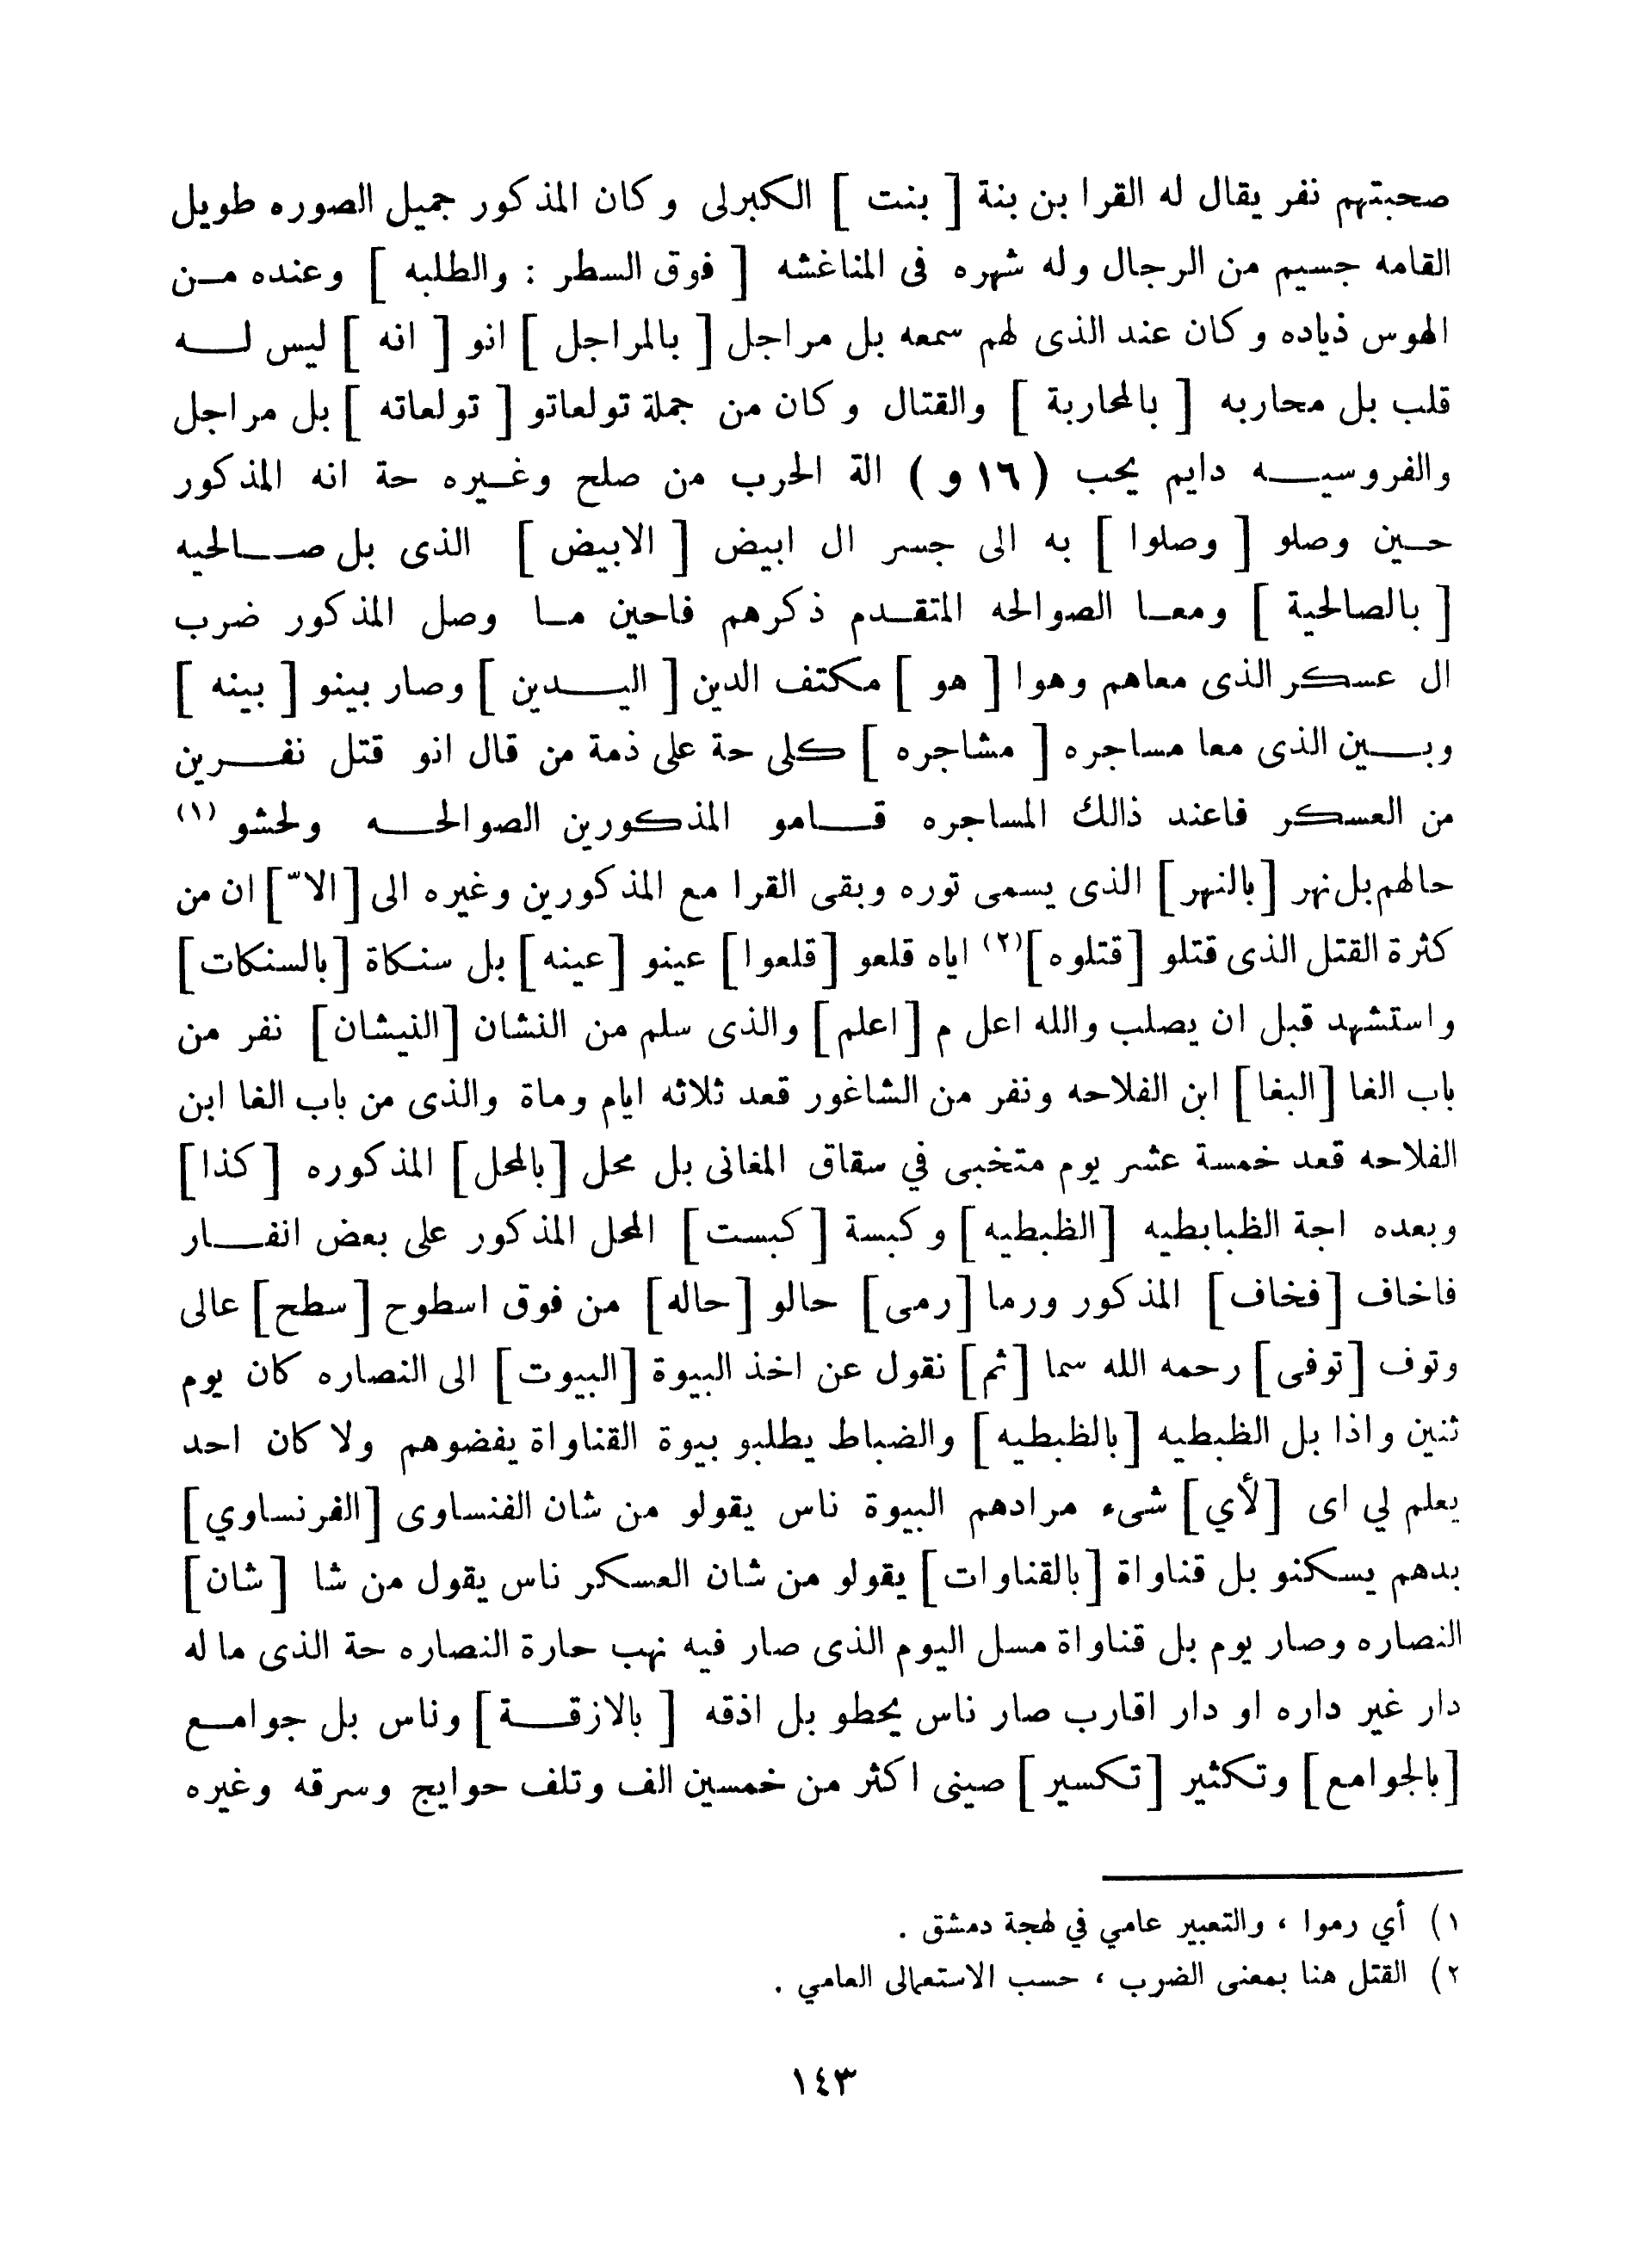 صحبتهم نفر يقال له القرا بن بنة [ بنت ] الكبرلى وكان المذكور جميل الصوره طويل
القامه جسيم من الرجال وله شهره فى المناغشه [ فوق السطر : والطلبه ] وعنده مـن
الهوس ذياده وكان عند الذى لهم سمعه بل مراجل [ بالمراجل ] انو [ انه ] ليس لـــه
قلب بل محاربه [ بالمحاربة ] والقتال وكان من جملة تولعاتو [ تولعاته ] بل مراجل
والفروسيـــه دايم يحب ( ١٦ و ) الة الحرب من صلح وغـيره حة انه المذكور
حـين وصلو [ وصلوا ] به الى جسر ال ابيض [ الابيض ] الذى بل صـــالحيه
[ بالصالحية ] ومعـا الصوالحه المتقـدم ذكرهم فاحين مـا وصل المذكور ضرب
ال عسكر الذى معاهم وهوا [ هو ] مكتف الدين [ اليـــدين ] وصار بينو [ بينه ]
وبـــين الذى معا مساجره [ مشاجره ] كلى حة على ذمة من قال انو قتل نفـــرين
من العسكر فاعند ذالك المساجره قـــامو المذكورين الصوالحـــه ولحشو (١)
حالهم بل نهر [بالنهر] الذى يسمى توره وبقى القرا مع المذكورين وغيره الى [الاّ] ان من
كثرة القتل الذى قتلو [قتلوه](٢) اياه قلعو [قلعوا] عينو [عينه] بل سنكاة [بالسنكات]
واستشهد قبل ان يصلب والله اعل م [اعلم] والذى سلم من النشان [النيشان] نفر من
باب الغا [البغا] ابن الفلاحه ونفر من الشاغور قعد ثلاثه ايام وماة والذى من باب الغا ابن
الفلاحه قعد خمسة عشر يوم متخبى في سقاق المغانى بل محل [بالمحل] المذكوره [كذا]
وبعده اجة الظبابطيه [الظبطيه] وكبسة [كبست] المحل المذكور على بعض انفـــار
فاخاف [فخاف] المذكور ورما [رمى] حالو [حاله] من فوق اسطوح [سطح] عالى
وتوف [توفى] رحمه الله سما [ثم] نقول عن اخذ البيوة [البيوت] الى النصاره كان يوم
ثنين واذا بل الظبطيه [بالظبطيه] والضباط يطلبو بيوة القناواة يفضوهم ولا كان احد
يعلم لي اى [لأي] شىء مرادهم البيوة ناس يقولو من شان الفنساوى [الفرنساوي]
بدهم يسكنو بل قناواة [بالقناوات] يقولو من شان العسكر ناس يقول من شا [شان]
النصاره وصار يوم بل قناواة مسل اليوم الذى صار فيه نهب حارة النصاره حة الذى ما له
دار غير داره او دار اقارب صار ناس يحطو بل اذقه [ بالازقـــة ] وناس بل جوامـــع
[بالجوامع] وتكثير [تكسير] صينى اكثر من خمسين الف وتلف حوايج وسرقه وغيره
١) أي رموا ، والتعبير عامي في لهجة دمشق .
٢) القتل هنا بمعنى الضرب ، حسب الاستعمالى العامي .
١٤٣